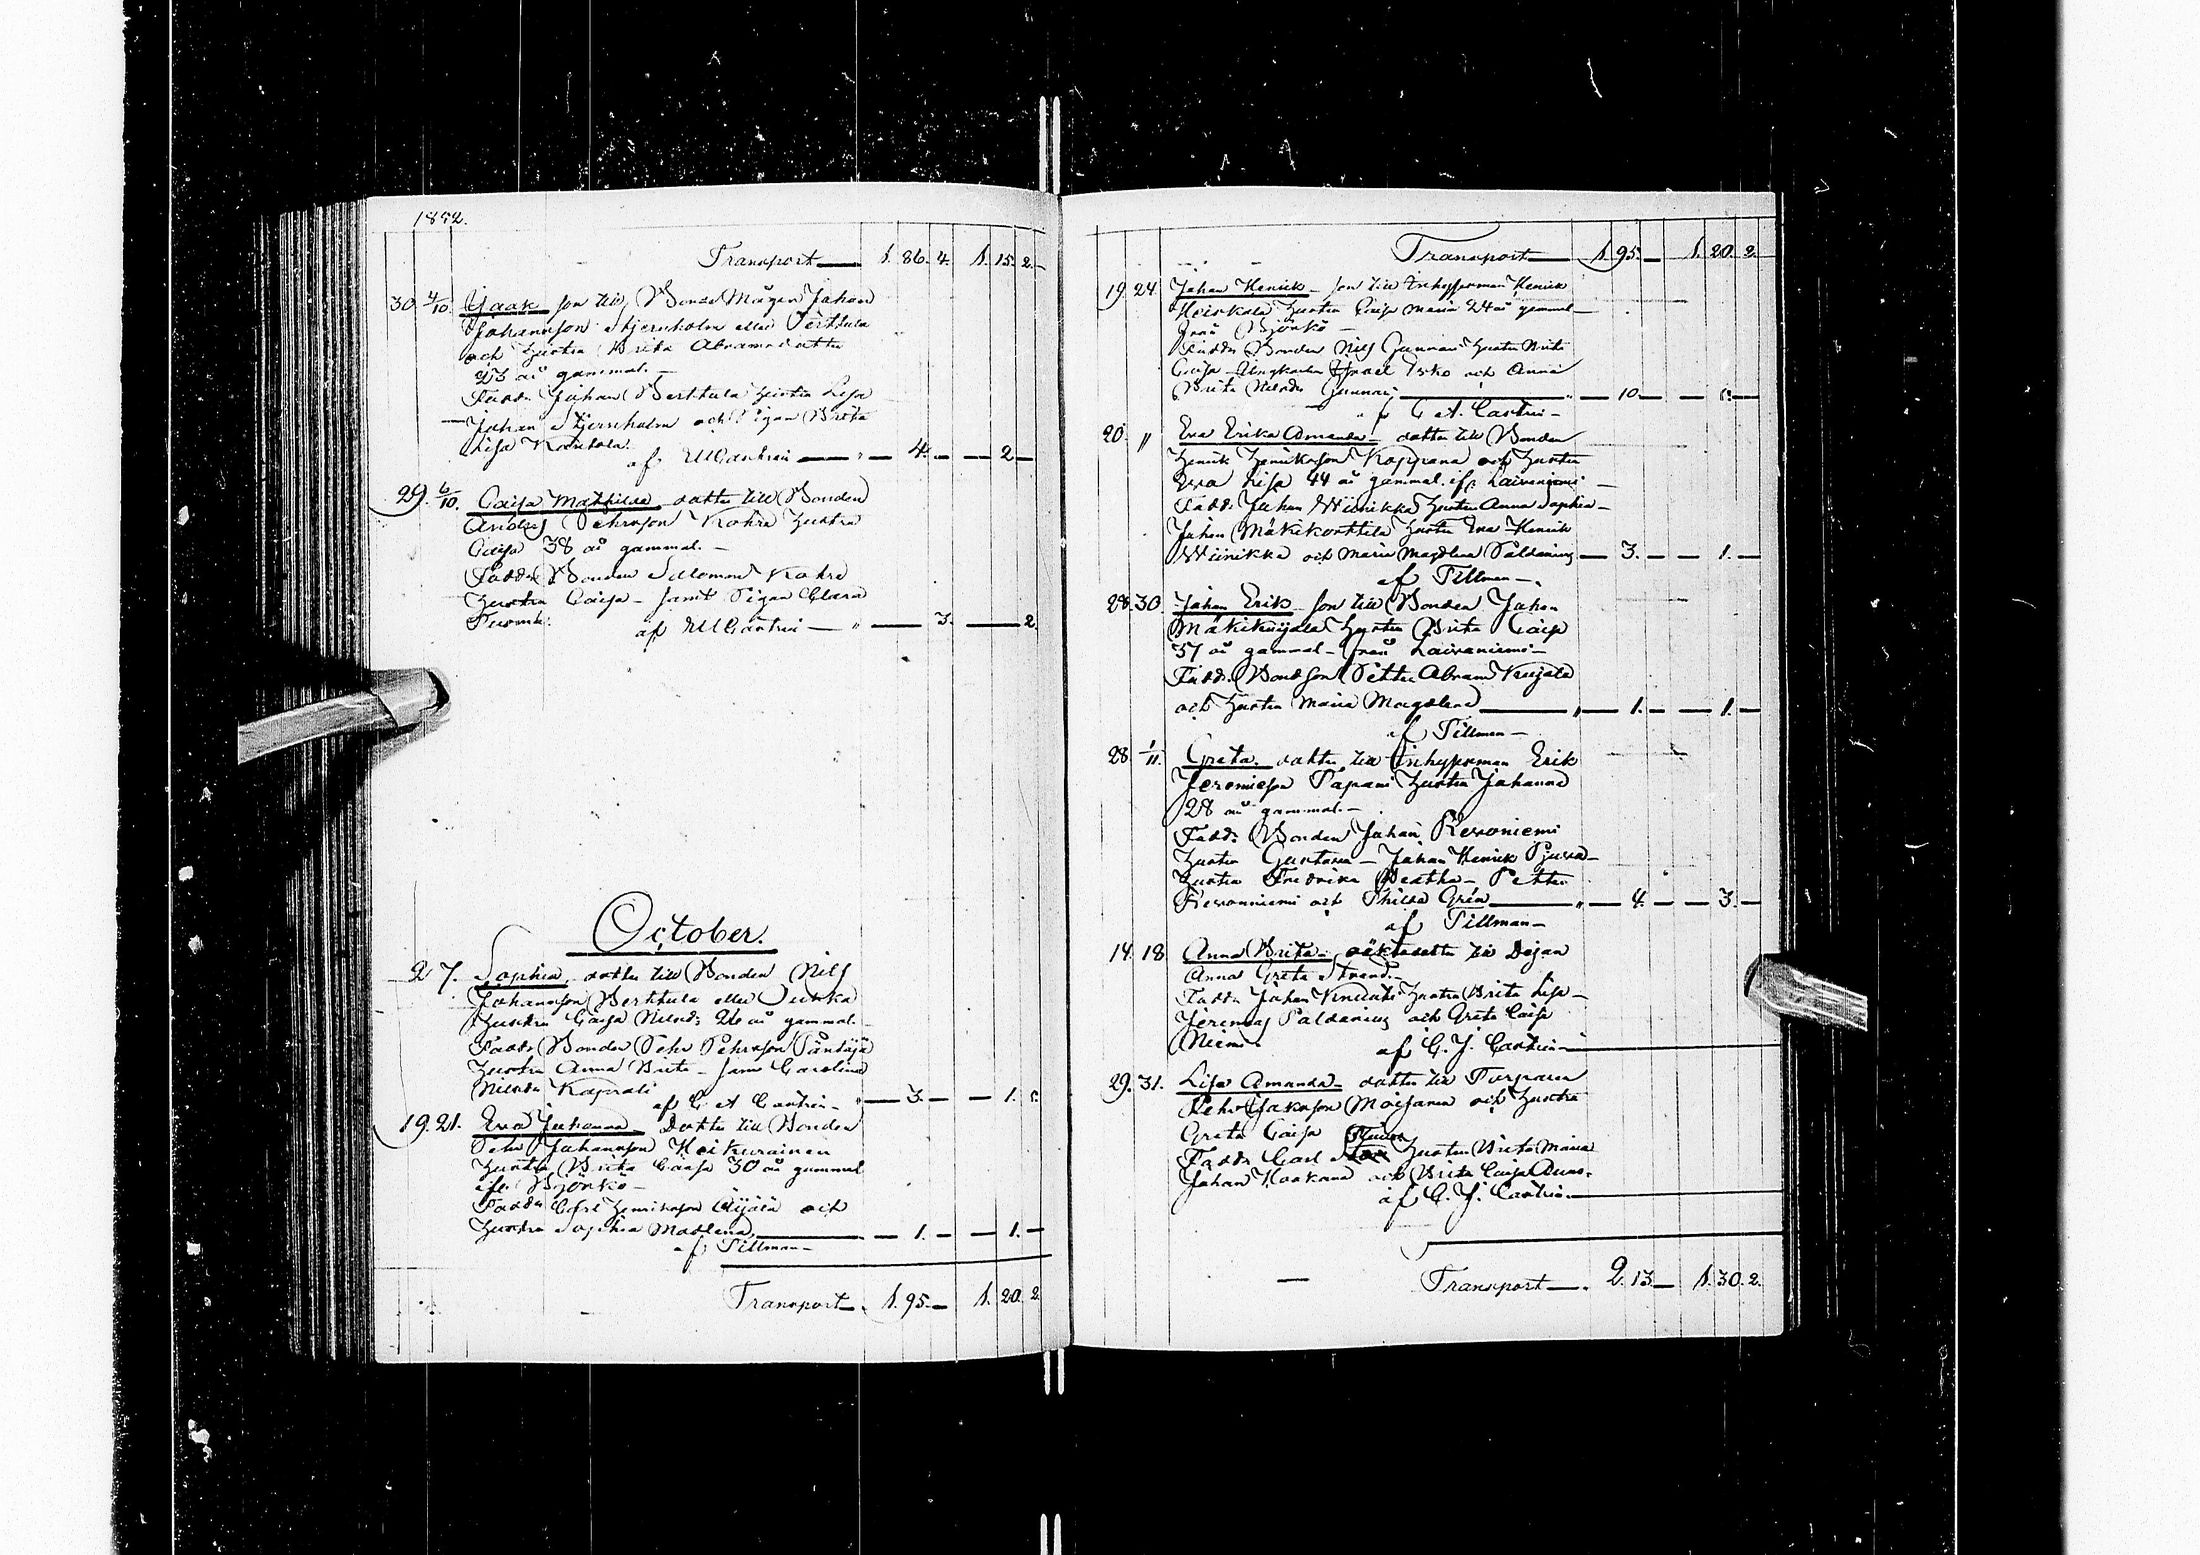 1852.
Transport — 1. 86. 4. 1. 15. 2.
30. 4/10. Isaak son till Bonde Mågen Johan
Johansson Stjernholm eller Perttula
och hustru Brita Abramsdotter
23 år gammal.—
Fadd. Johan Perttula hustru Lisa
— Johan Stjernholm och Pigan Brita
Lisa Karihola.
af EUCastrén — " — 4. — — 2 —
29. 6/10. Caisa Mathilda dotter till Bonden
Anders Pehrsson Kohra hustru
Caisa 38 år gammal.—
Fadd. Bonden Salomon Kohra
hustru Caisa — samt Pigan Clara
af EUCastrén — " — 3. — 2.
October.
2 7. Sophia, dotter till Bonden Nils
Johansson Perttula eller
hustru Caisa Nilsd: 26 år gammal.
Fadd. Bonden Pehr Pehrsson
hustru Anna Brita — samt Carolina
Nilsdr Kaprali
af C A Castrén — " — 3. — — 1. 5.
19. 21. Eva Johanna Dotter till Bonden
Pehr Johansson Heikurainen
hustru Brita Caisa 30 år gammal
ifr. Björkö —
Fadd. Carl Henriksson Äijälä och
hustru Sophia Madlena — — 1. — — 1. —
af Tillman —
Transport — 1. 95. — 1. 20. 2.
Transport — 1 95. — 1. 20. 2.
19. 24. Johan Henrik — son till Inhysesman Henrik
Heikkala hustru Caisa Maria 24 år gammal —
från Björkö —
Fadd. Bonden Nils Gunnari hustru Brita
Caisa — Ungkarlen Israel Esko och Anna
Brita Nilsdr Gunnari — " — 10. — — 5. —
af C A. Castrén —
20. " Eva Erika Amanda — dotter till Bonden
Henrik Henriksson Koppana och hustru
Eva Lisa 44 år gammal. ifr. Laivaniemi —
Fadd. Johan Wiinikka hustru Anna Sophia —
Johan Mäkikorttila hustru Eva — Henrik
Wiinikka och Maria Magdlena Paldanius — 3. — — 1. —
af Tillman —.
28. 30. Johan Erik son till Bonden Johan
Mäkikuijala hustru Brita Caisa
37 år gammal — från Laivaniemi —
Fadd. Bondson Petter Abram Kuijala
och hustru Maria Magdlena — " — 1. — — 1. —
af Tillman —
28. 1/11. Greta, dotter till Inhysesman Erik
Jeremiesson Papani hustru Johanna
28 år gammal.—
Fadd. Bonden Johan Kesoniemi
hustru Gustava — Johan Henrik
hustru Fredrika — Petter
och — " — 4. — — 3. —
af Tillman —
14. 18 Anna Brita — oäkta dotter till Pigan
Anna Greta Strand.—
Fadd. Johan hustru Brita Lisa —
Jeremias Paldanius och Greta Caisa
Niemi
af C. J. Castrén —
29. 31. Lisa Amanda — dotter till Torparen
Pehr Isaksson Moisanen och hustru
Greta Caisa
Fadd. Carl hustru Brita Maria
Johan och Brita Caisa
af C. J. Castrén —
Transport —. 2. 13 — 1. 30. 2.